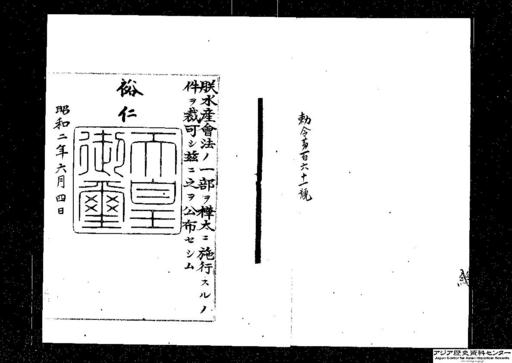 勅令第百六十一號
朕水産會法ノ一部ヲ樺太ニ施行スルノ
件ヲ裁可シ茲ニ之ヲ公布セシム
裕仁
天皇
御璽
昭和二年六月四日
アジア歴史資料センター
Japan Center for Asian Historical Records